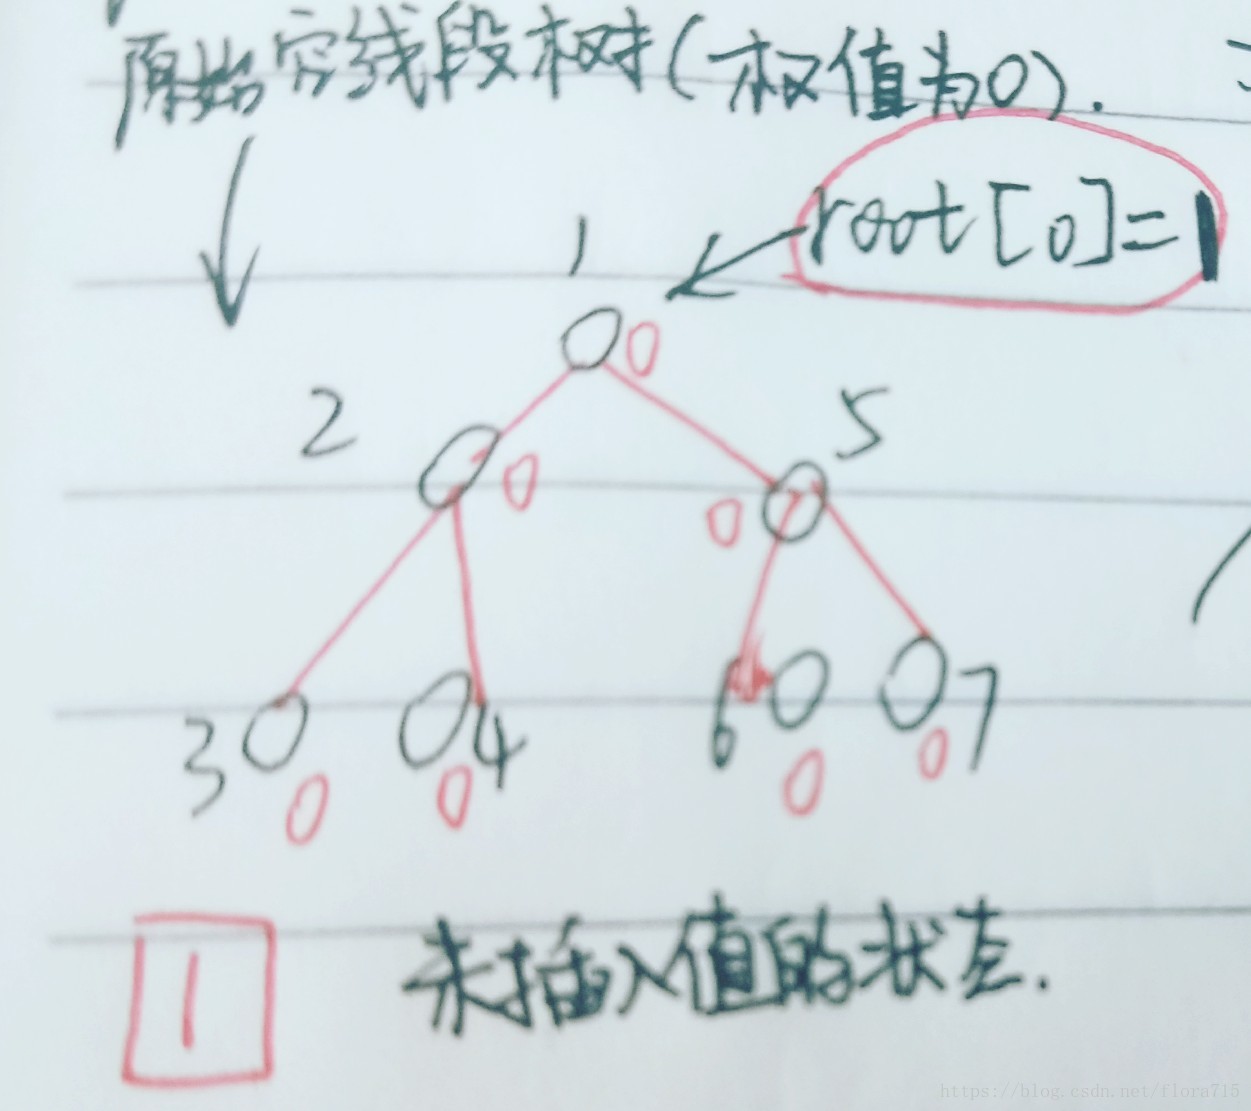 原始空线段树(权值为0).
root[0]=1
1
0
2
5
0
0
3
4
6
7
0
0
0
0
1
未插入值的状态.
https://blog.csdn.net/flora715